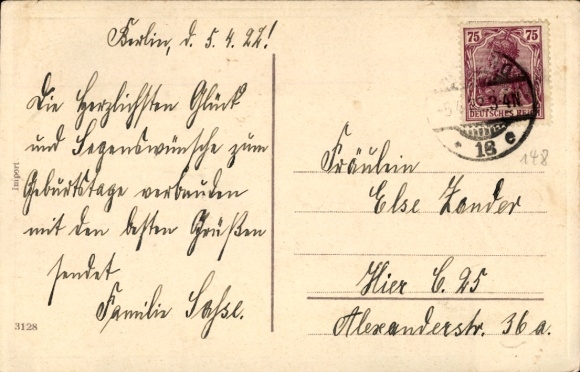 Berlin, d. 5. 4. 22!
Die Herzlichsten Glück
und Segenswünsche zum
Geburtstage verbunden
mit den besten Grüßen
sendet
Familie Sasse.
Import
3128
75 75
DEUTSCHES REICH
3-4N
* 18 e
148
Fräulein
Else Zander
Hier C. 25
Alexanderstr. 36 a.